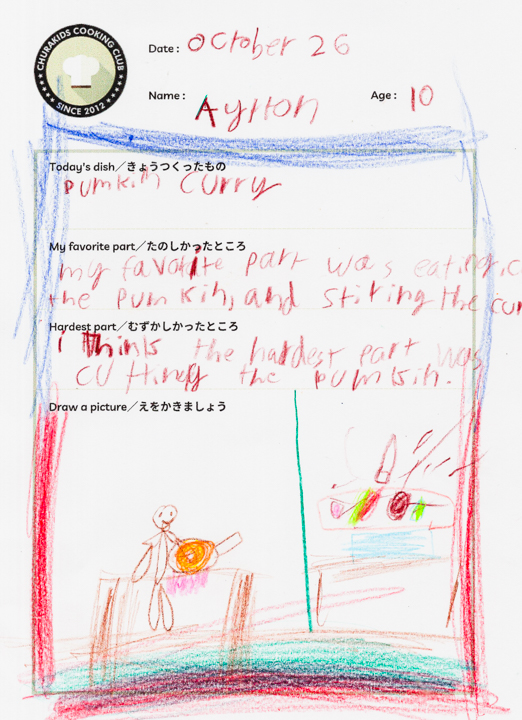 CHURAKIDS COOKING CLUB
SINCE 2012
Date : October 26
Name : Ayrton Age : 10
Today's dish／きょうつくったもの
Pumkin curry
My favorite part／たのしかったところ
my favorite part was eating
the pumkin, and stiring the cur
Hardest part／むずかしかったところ
i think the hardest part was
cutting the pumkin.
Draw a picture／えをかきましょう